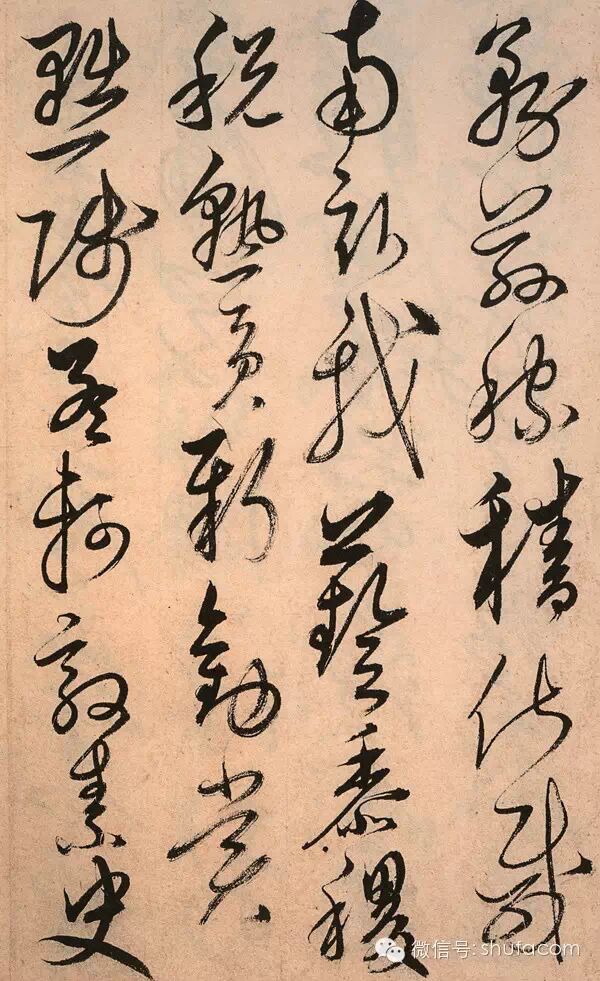 務茲稼穡俶載
南畝我藝黍稷
稅熟貢新勸賞
黜陟孟軻敦素史
微信号: shufacom